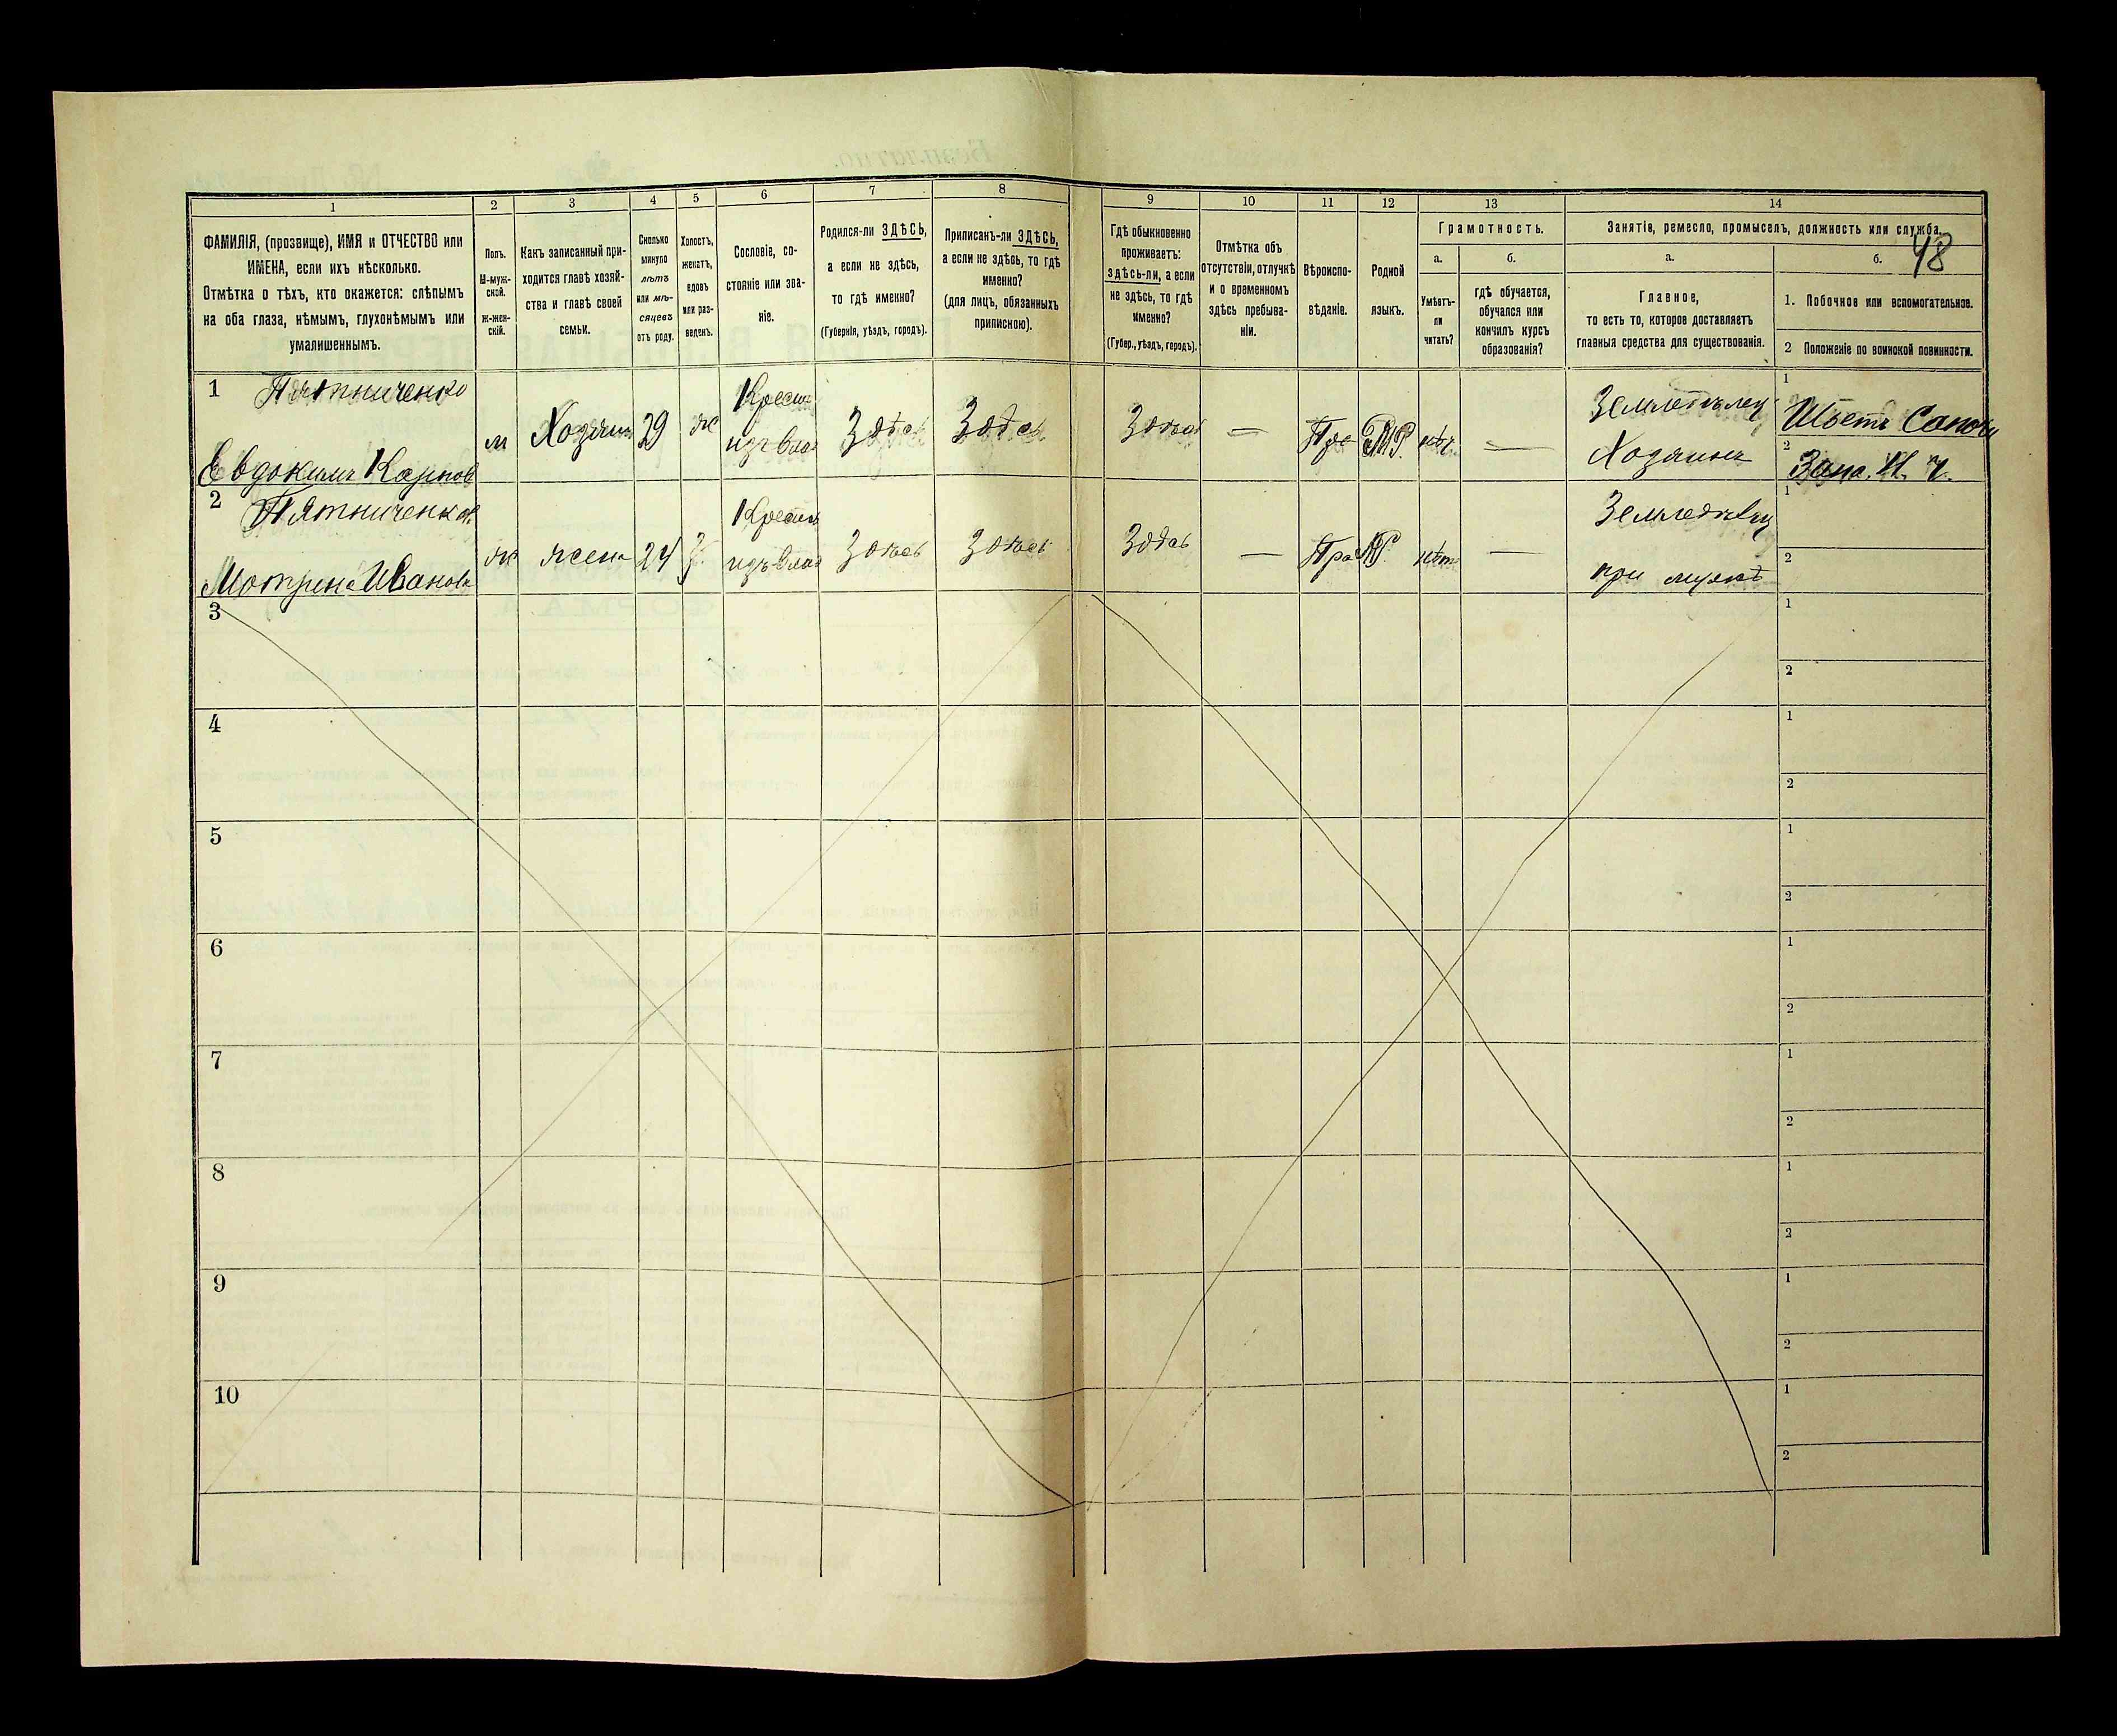 48
1 2 3 4 5 6 7 8 9 10 11 12 13 14
ФАМИЛІЯ, (прозвище), ИМЯ и ОТЧЕСТВО или
ИМЕНА, если ихъ нѣсколько.
Отмѣтка о тѣхъ, кто окажется: слѣпымъ
на оба глаза, нѣмымъ, глухонѣмымъ или
умалишеннымъ.
Полъ.
М-муж-
ской.
ж-жен-
скій.
Какъ записанный при-
ходится главѣ хозяй-
ства и главѣ своей
семьи.
Сколько
минуло
лѣтъ
или мѣ-
сяцевъ
отъ роду.
Холостъ,
женатъ,
вдовъ
или раз-
веденъ.
Сословіе, со-
стояніе или зва-
ніе.
Родился-ли ЗДѢСЬ,
а если не здѣсь,
то гдѣ именно?
(Губернія, уѣздъ, городъ).
Приписанъ-ли ЗДѢСЬ,
а если не здѣсь, то гдѣ
именно?
(для лицъ, обязанныхъ
припискою).
Гдѣ обыкновенно
проживаетъ:
здѣсь-ли, а если
не здѣсь, то гдѣ
именно?
(Губер., уѣздъ, городъ).
Отмѣтка объ
отсутствіи, отлучкѣ
и о временномъ
здѣсь пребыва-
ніи.
Вѣроиспо-
вѣданіе.
Родной
языкъ.
Грамотность.
а.
Умѣетъ-
ли
читать?
б.
гдѣ обучается,
обучался или
кончилъ курсъ
образованія?
Занятіе, ремесло, промыселъ, должность или служба.
а.
Главное,
то есть то, которое доставляетъ
главныя средства для существованія.
б.
1. Побочное или вспомогательное.
2 Положеніе по воинской повинности.
1 Пятниченко
Евдокимъ Карпов
м Хозяинъ 29 ж Крест изъ влад Здѣсь Здѣсь Здѣсь — Пра М.Р. нѣт —
Земледѣлец
Хозяинъ
1 Шьетъ Сапоги
2 Запа. Н. Ч.
2 Пятниченкова
Мотрина Иванова
ж жена 24 З. Крестъ изъ влад Здѣсь Здѣсь Здѣсь — Пра МР нѣт —
Земледѣлец
при мужѣ
1
2
3
1
2
4
1
2
5
1
2
6
1
2
7
1
2
8
1
2
9
1
2
10
1
2